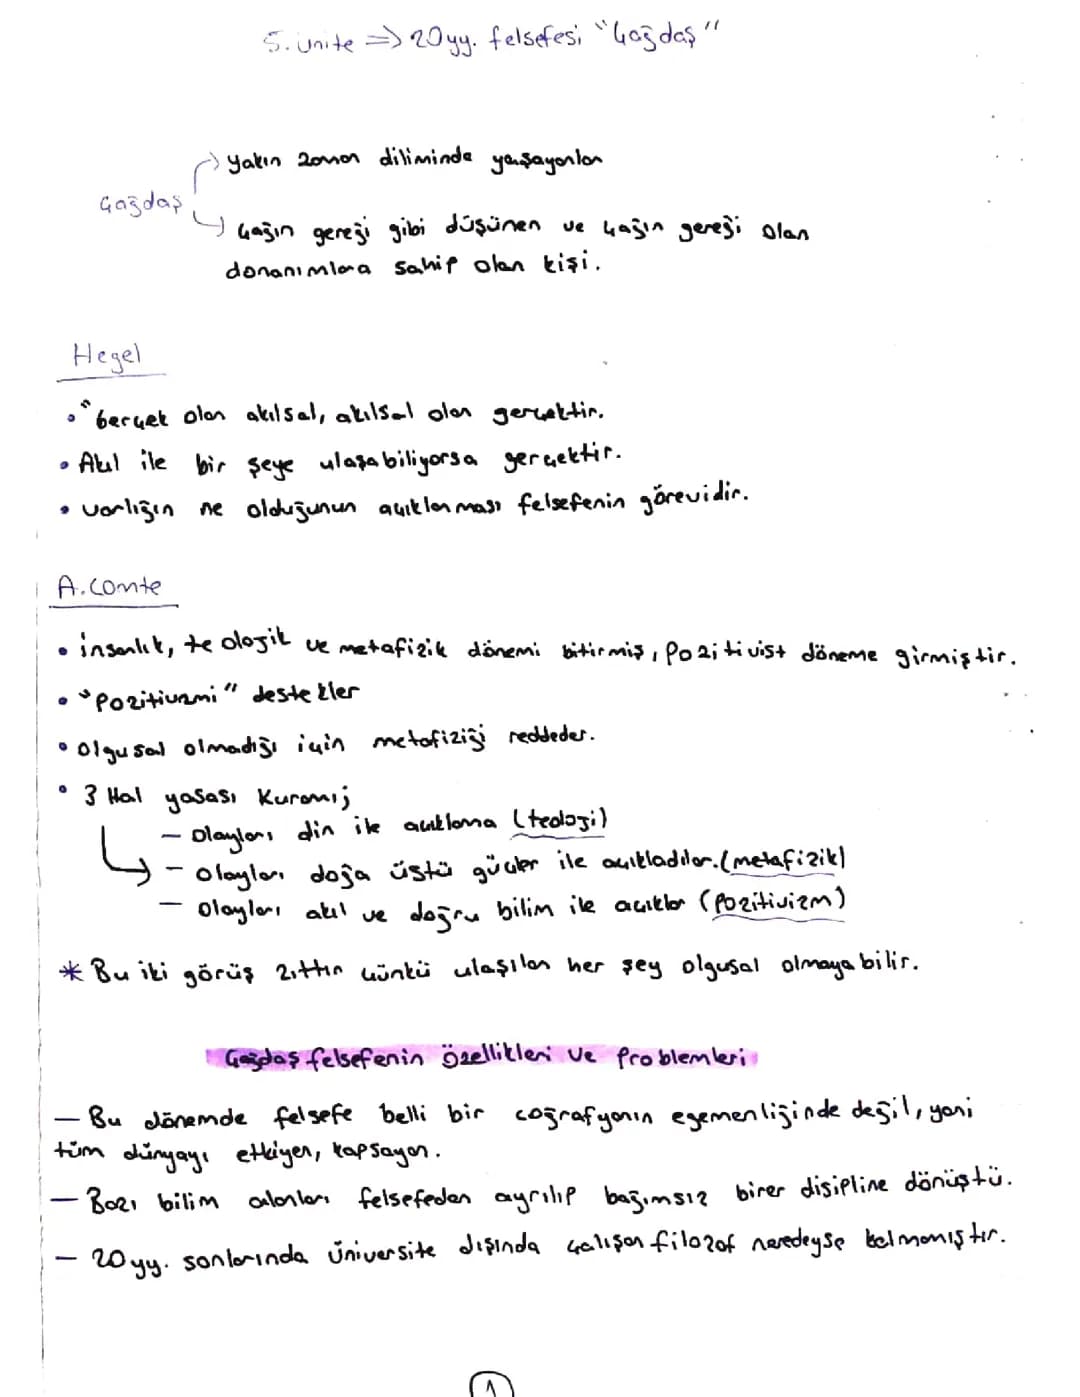 5. Ünite => 20yy. felsefesi "Çağdaş"
yakın zaman diliminde yaşayanlar
Çağdaş
Çağın gereği gibi düşünen ve çağın gereği olan
donanımlara sahip olan kişi.
Hegel
• "Gerçek olan akılsal, akılsal olan gerçektir.
• Akıl ile bir şeye ulaşabiliyorsa gerçektir.
• Varlığın ne olduğunun açıklanması felsefenin görevidir.
A. Comte
• insanlık, teolojik ve metafizik dönemi bitirmiş, Pozitivist döneme girmiştir.
• "Pozitivizmi" destekler
• Olgusal olmadığı için metafiziği reddeder.
• 3 Hal yasası Kuramı;
— Olayları din ile açıklama (teoloji)
— Olayları doğa üstü güçler ile açıkladılar. (metafizik)
— Olayları akıl ve doğru bilim ile açıklar (Pozitivizm)
* Bu iki görüş zıttır çünkü ulaşılan her şey olgusal olmayabilir.
Çağdaş felsefenin Özellikleri ve Problemleri
— Bu dönemde felsefe belli bir coğrafyanın egemenliğinde değil, yani
tüm dünyayı etkiyen, kapsayan.
— Bazı bilim alanları felsefeden ayrılıp bağımsız birer disipline dönüştü.
— 20yy. sonlarında üniversite dışında çalışan filozof neredeyse kalmamıştır.
1